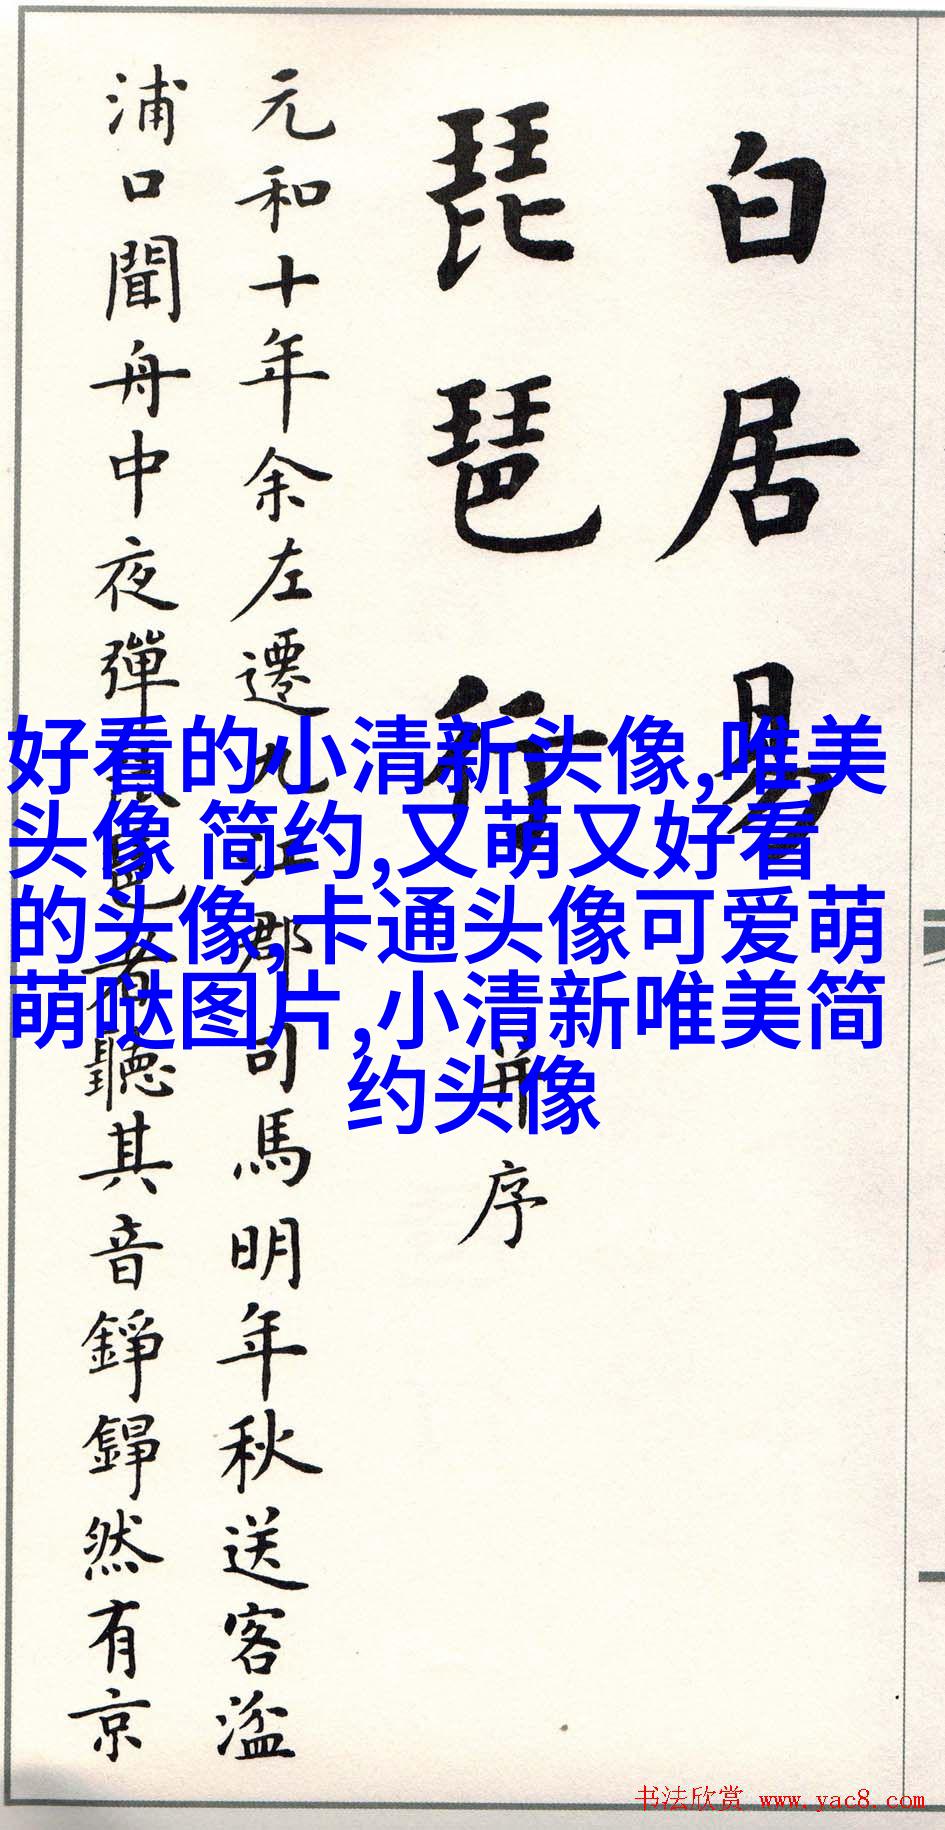 白居易
琵琶行 并序
元和十年余左遷九江郡司馬明年秋送客湓
浦口聞舟中夜彈琵琶者聽其音錚錚然有京
好看的小清新头像,唯美
头像 简约,又萌又好看
的头像,卡通头像可爱萌
萌哒图片,小清新唯美简
约头像
书法欣赏 www.yac8.com